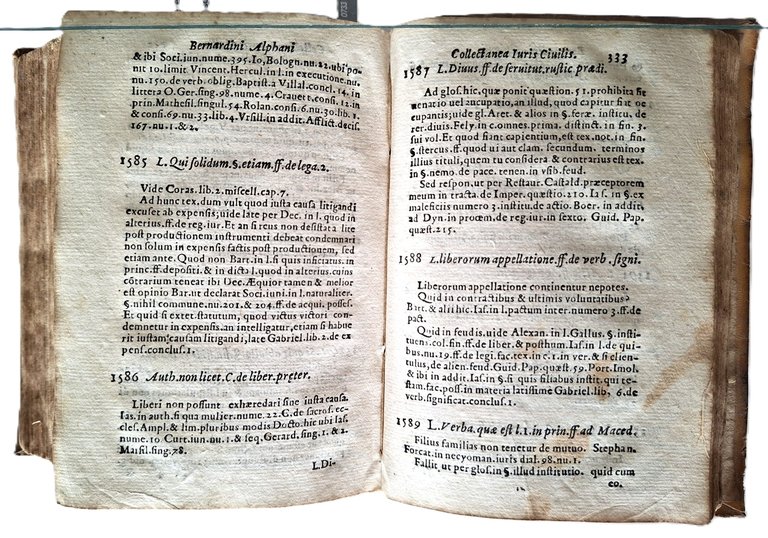 Bernardini Alphani
& ibi Soci.iun.nume.395.Io,Bologn.nu.22.ubi po-
nit 10.limit. Vincent.Hercul.in l.in executione.nu.
nu.150.de verb.oblig.Baptist.a Villal.concl.14.in
littera O.Ger.sing.98.nume.4.Crauett.consi.12.in
prin.Mathesil.singul.54.Rolan.consi.6.nu.30.lib.1.
& consi.69.nu.33.lib.4.Vrsill.in addit.Afflict.decis.
167.nu.1.&2.
1585 L.Qui solidum.§.etiam.ff.de lega.2.
Vide Coras.lib.2.miscell.cap.7.
Ad hunc tex.dum vult quod iusta causa litigandi
excuset ab expensis;uide late per Dec. in l. quod in
alterius.ff.de reg.iur.Et an si reus non destitit a lite
post productionem instrumenti debeat condemnari
non solum in expensis factis post productionem, sed
etiam ante. Quod non Bart.in l.si quis inficiatus.in
princ.ff.depositi.& in dicta l.quod in alterius.cuius
cõtrarium teneat ibi Dec.Æquior tamen & melior
est opinio Bar.ut declarat Soci.iuni.in l.naturaliter.
§.nihil commune.nu.201.& 204.ff.de acqui. posses.
Et quid si extet.statutum, quod victus victori con-
demnetur in expensis.an intelligatur, etiam si habue
rit iustam;causam litigandi,late Gabriel.lib.2.de ex
pens.conclus.1.
1586 Auth.non licet.C.de liber.preter.
Liberi non possunt exhæredari sine iusta causa.
Ias.in auth.si qua mulier.nume.22.C.de sacros.ec-
cles.Ampl.& lim.pluribus modis.Docto.hic ubi Ias.
nume.10 Curt.iun.nu.1.& seq.Gerard.sing.1.& 2.
Marsil.sing.78.
L.Di-
Collectanea Iuris Ciuilis. 333
1587 L.Diuus.ff.de seruitut.rustic prædi.
Ad glos.hic,quæ ponit quæstion. 51.prohibita sit
uenatio uel aucupatio,an illud, quod capitur fiat oc
eupantis;uide gl.Aret. & alios in §.feræ. institu. de
rer.diuis.Fely.in c.omnes.prima. distinct. in fin. 3.
sui vol.Et quod fiant capientium,est tex.not.in fin.
§.stercus.ff.quod ui aut clam. secundum. terminos
illius tituli, quem tu considera & contrarius est tex.
in §.nemo.de pace.tenen.in vsib.feud.
Sed respon.ut per Restaur. Castald.præceptorem
meum in tracta.de Imper.quæstio.210. Ias. in §.ex
maleficiis numero 3.institu.de actio.Boer. in addit.
ad Dyn.in proœm.de reg.iur.in sexto. Guid. Pap.
quæst.215.
1588 L.liberorum appellatione.ff.de verb.signi.
Liberorum appellatione continentur nepotes.
Quid in contractibus & ultimis voluntatibus?
Bart.& alii hic.Ias.in l.pactum inter.numero 3.ff.de
pact.
Quid in feudis,uide Alexan. in l.Gallus. §.insti-
tuens.col.fin.ff.de liber.& posthum.Ias.in l.de qui-
bus.nu.19.ff.de legi.fac.tex.in c.1.in ver.& si elien-
tulus,de alien.feud.Guid.Pap.quæst.59.Port.Imol.
& ibi in addit.Ias.in §.si quis filiabus instit.qui te-
stam.fac.poss.in materia latissime Gabriel.lib, 6.de
verb.significat.conclus.1.
1589 L.Verba.quæ est l.1.in prin.ff.ad Maced.
Filius familias non tenetur de mutuo. Stephan.
Forcat.in necyoman.iuris dial.98.nu.1.
Fallit ut per glos.in §.illud institutio. quid cum
eo.